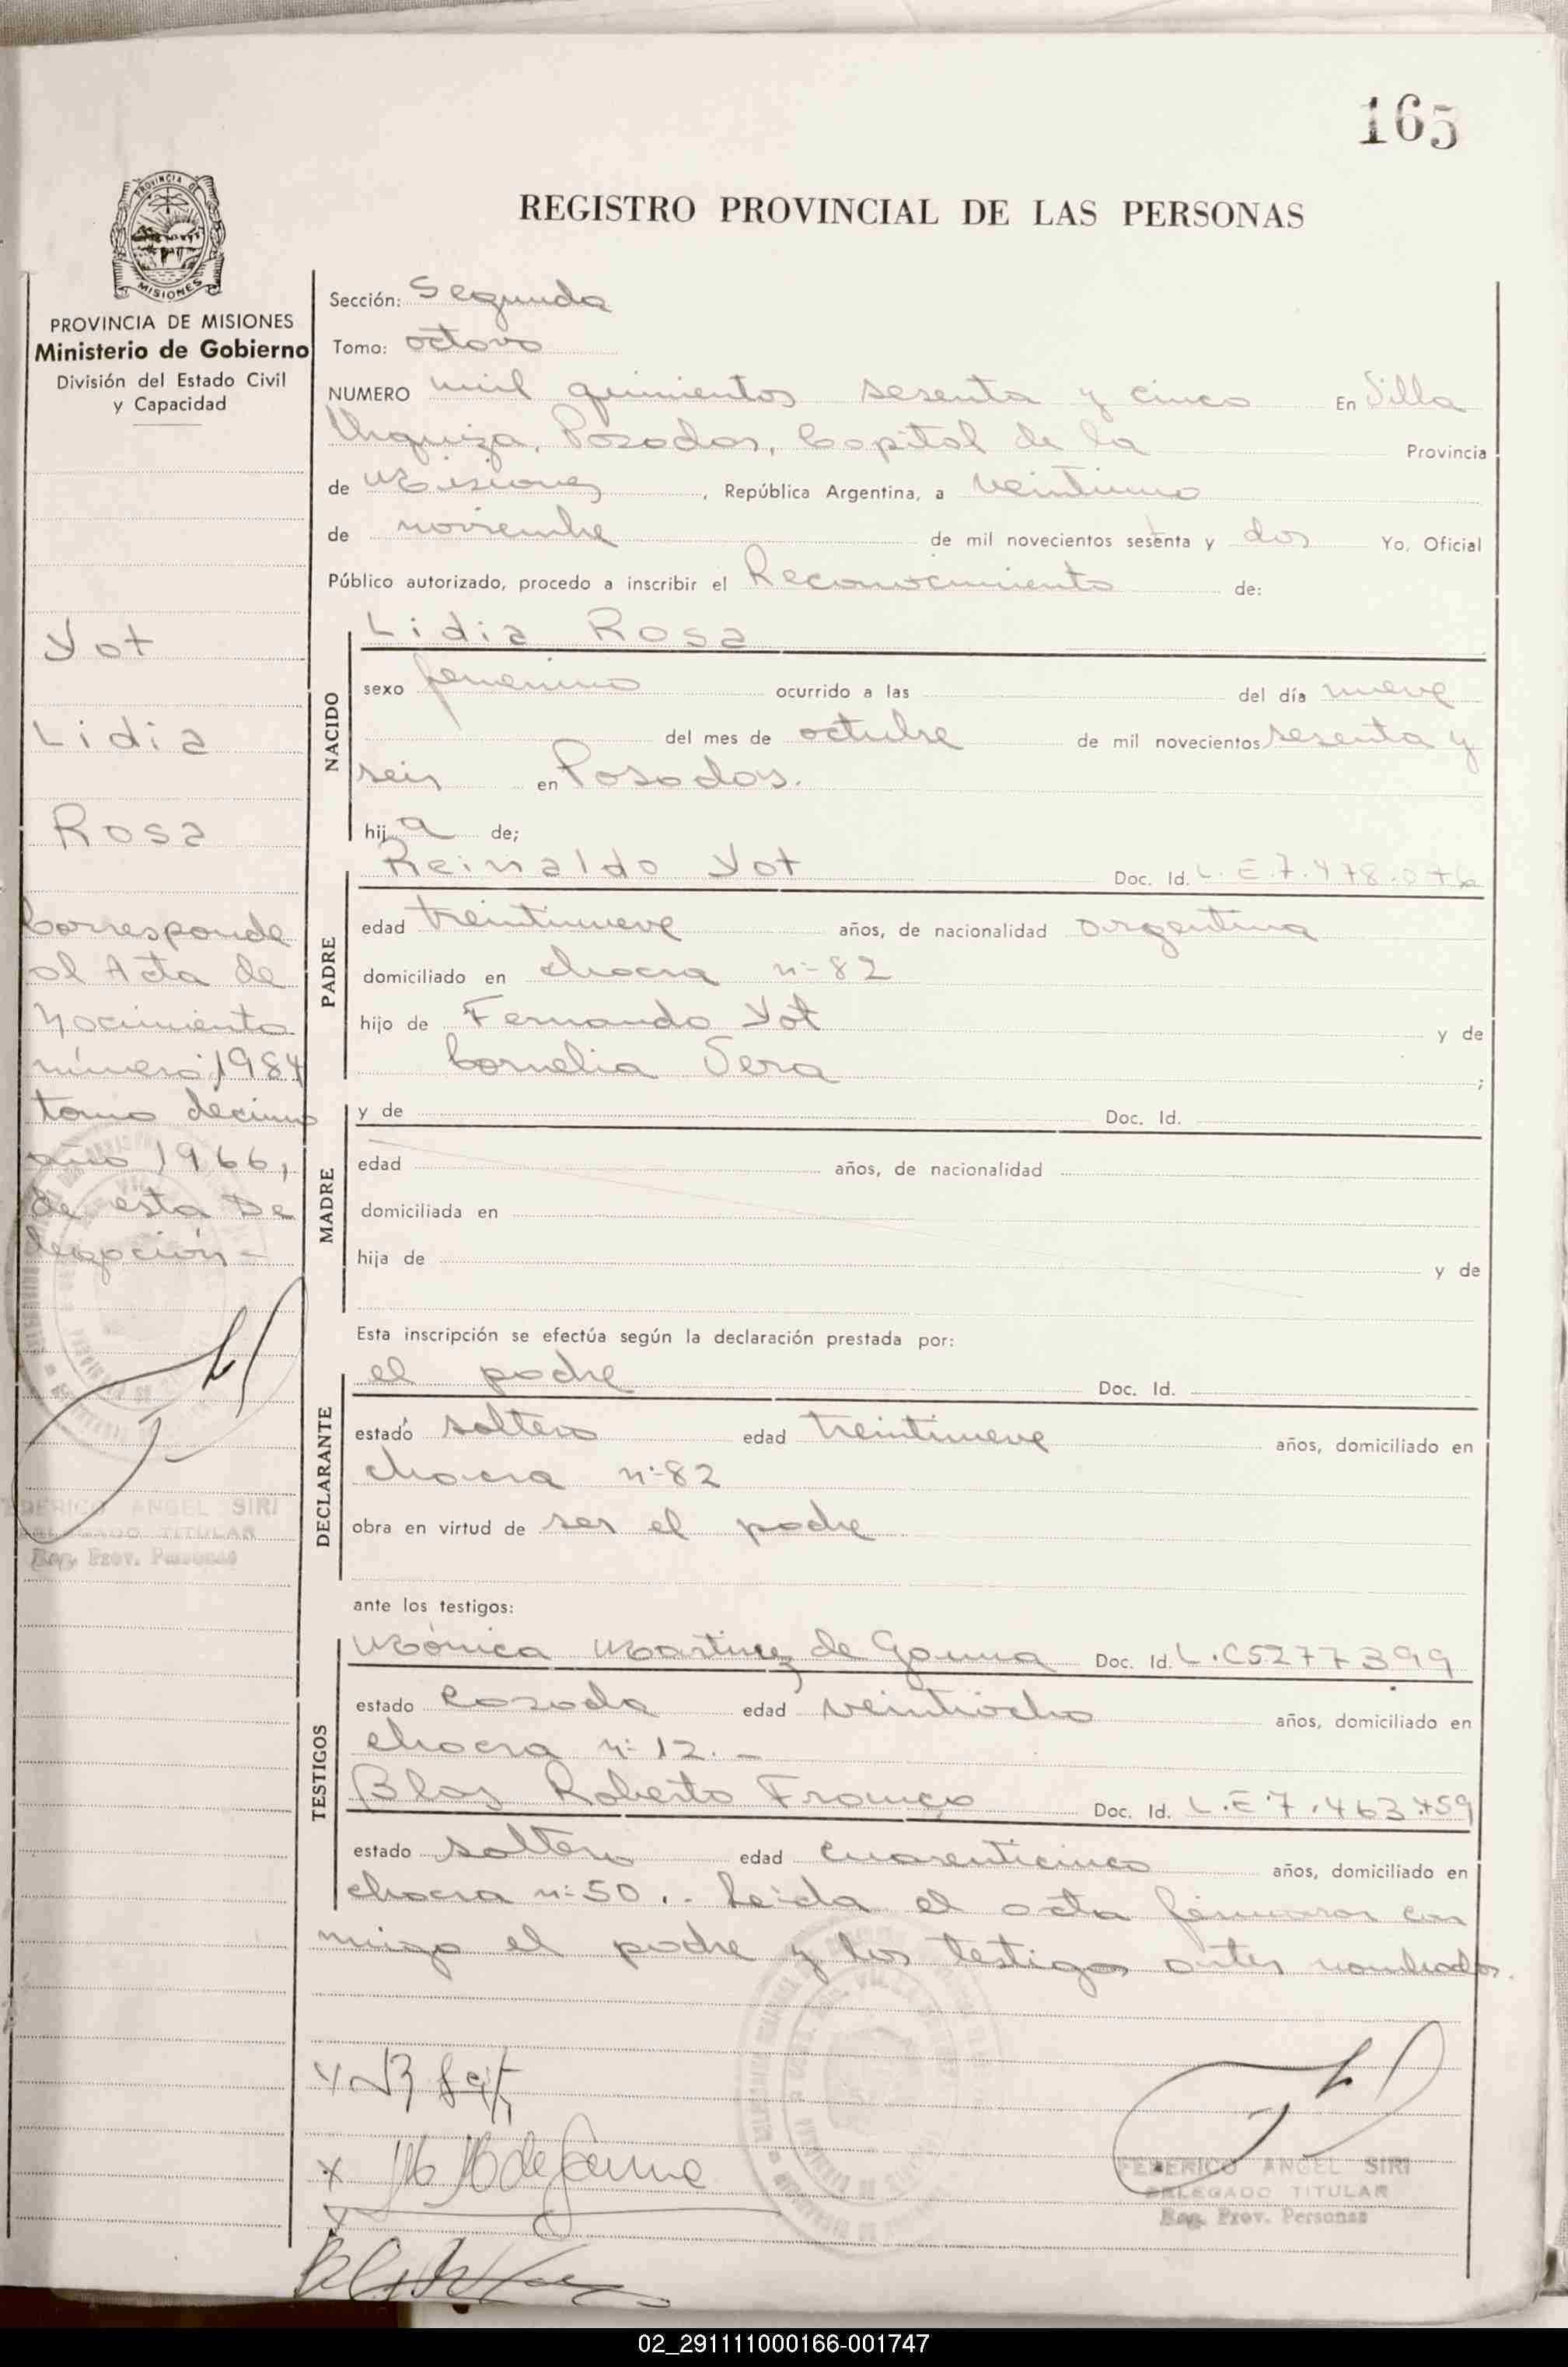 165
REGISTRO PROVINCIAL DE LAS PERSONAS
PROVINCIA DE MISIONES
MISIONES
PROVINCIA DE MISIONES
Ministerio de Gobierno
División del Estado Civil
y Capacidad
Yot
Lidia
Rosa
Corresponde
al Acta de
Nacimiento
número 1984
tomo décimo
año 1966,
de esta De
legación-
ANGEL SIRI
DELEGADO TITULAR
Reg. Prov. Personas
Sección: Segunda
Tomo: octavo
NUMERO mil quinientos sesenta y cinco En Villa
Urquiza, Posadas, Capital de la Provincia
de Misiones, República Argentina, a veintiuno
de noviembre de mil novecientos sesenta y dos Yo, Oficial
Público autorizado, procedo a inscribir el Reconocimiento de:
NACIDO
Lidia Rosa
sexo femenino ocurrido a las del día nueve
del mes de octubre de mil novecientos sesenta y
seis en Posadas.
hija de;
PADRE
Reinaldo Yot Doc. Id. L.E.7.478.076
edad treintinueve años, de nacionalidad argentina
domiciliado en chacra n-82
hijo de Fernando Yot y de
Cornelia Vera ;
MADRE
y de Doc. Id.
edad años, de nacionalidad
domiciliada en
hija de y de
Esta inscripción se efectúa según la declaración prestada por:
DECLARANTE
el padre Doc. Id.
estado soltero edad treintinueve años, domiciliado en
chacra n-82
obra en virtud de ser el padre
ante los testigos:
TESTIGOS
Mónica Martinez de Doc. Id. L.C5277399
estado casada edad veintiocho años, domiciliado en
chacra n-12.-
Blas Roberto Franco Doc. Id. L.E.7.463.459
estado soltero edad cuarenticinco años, domiciliado en
chacra n-50.- Leída el acta firmaron con
migo el padre y los testigos antes nombrados.
FEDERICO ANGEL SIRI
DELEGADO TITULAR
Reg. Prov. Personas
02_291111000166-001747